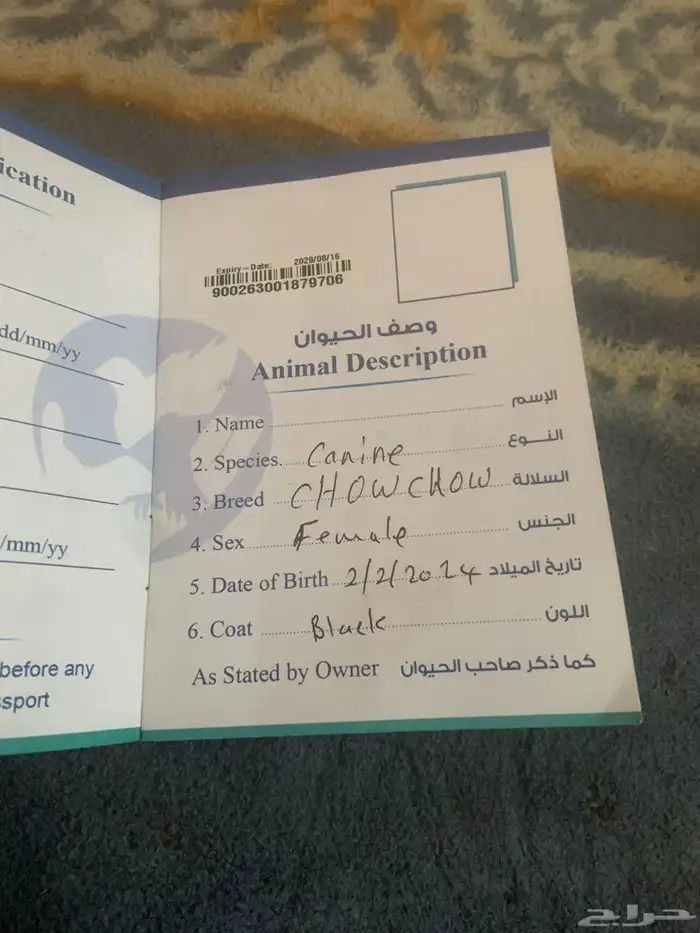 ication
dd/mm/yy
/mm/yy
before any
sport
Expiry-Date: 2029/08/16
900263001879706
وصف الحيوان
Animal Description
1. Name الإسم
2. Species. Canine النوع
3. Breed CHOWCHOW السلالة
4. Sex Female الجنس
5. Date of Birth 2/2/2024 تاريخ الميلاد
6. Coat Black اللون
As Stated by Owner كما ذكر صاحب الحيوان
حراج